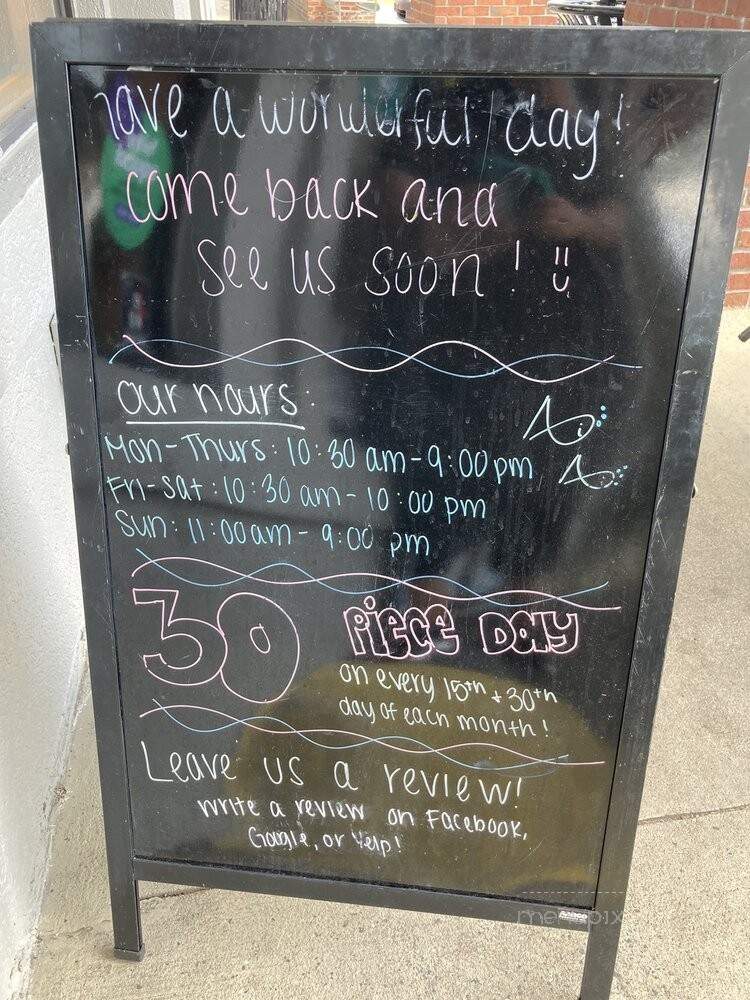 have a wonderful day!
come back and
see us soon! :)
our hours:
Mon-Thurs: 10:30 am-9:00 pm
Fri-Sat: 10:30 am-10:00 pm
Sun: 11:00am-9:00 pm
30 Piece Day
on every 15th + 30th
day of each month!
Leave us a review!
write a review on Facebook,
Google, or Yelp!